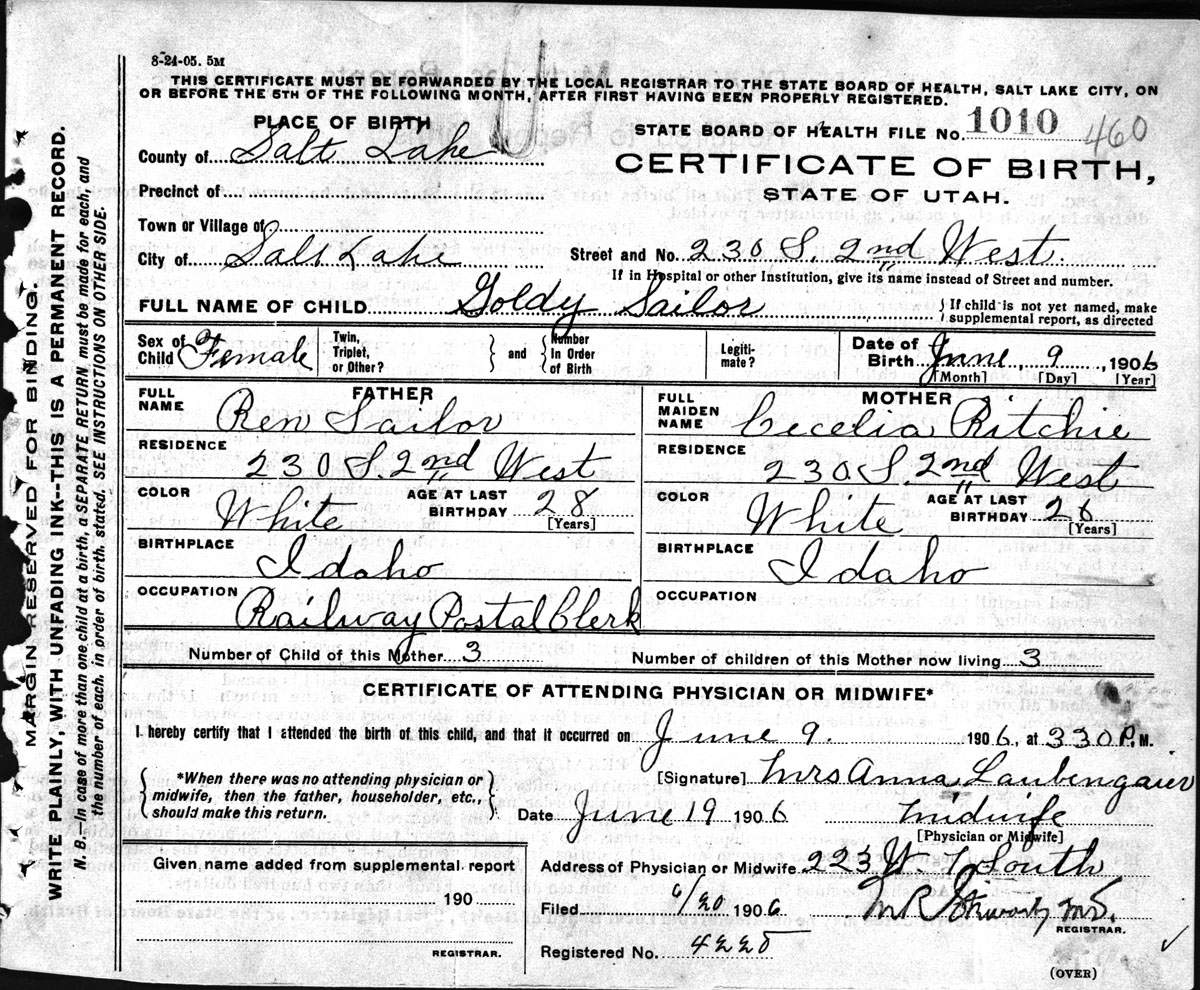 8-24-05. 5M
THIS CERTIFICATE MUST BE FORWARDED BY THE LOCAL REGISTRAR TO THE STATE BOARD OF HEALTH, SALT LAKE CITY, ON
OR BEFORE THE 5TH OF THE FOLLOWING MONTH, AFTER FIRST HAVING BEEN PROPERLY REGISTERED.
PLACE OF BIRTH
STATE BOARD OF HEALTH FILE No. 1010 460
County of Salt Lake
CERTIFICATE OF BIRTH,
Precinct of
STATE OF UTAH.
Town or Village of
City of Salt Lake
Street and No. 230 S. 2nd West
If in Hospital or other Institution, give its name instead of Street and number.
FULL NAME OF CHILD Goldy Sailor
{ If child is not yet named, make
supplemental report, as directed
Sex of Child Female
Twin, Triplet, or Other?
and
Number In Order of Birth
Legiti-mate?
Date of Birth June 9, 1906
[Month] [Day] [Year]
FATHER
FULL NAME Ren Sailor
RESIDENCE 230 S. 2nd West
COLOR White AGE AT LAST BIRTHDAY 28 [Years]
BIRTHPLACE Idaho
OCCUPATION Railway Postal Clerk
MOTHER
FULL MAIDEN NAME Cecelia Ritchie
RESIDENCE 230. S. 2nd West
COLOR White AGE AT LAST BIRTHDAY 26 [Years]
BIRTHPLACE Idaho
OCCUPATION
Number of Child of this Mother 3
Number of children of this Mother now living 3
CERTIFICATE OF ATTENDING PHYSICIAN OR MIDWIFE*
I hereby certify that I attended the birth of this child, and that it occurred on June 9. 1906, at 330 P. M.
{ *When there was no attending physician or
midwife, then the father, householder, etc.,
should make this return. }
[Signature] Mrs Anna Laubengaier
Date June 19 1906 Midwife
[Physician or Midwife]
Given name added from supplemental report
190
REGISTRAR.
Address of Physician or Midwife 223 W. South
Filed 6/20 1906
M.D.
REGISTRAR.
Registered No. 4225
(OVER)
MARGIN RESERVED FOR BINDING.
WRITE PLAINLY, WITH UNFADING INK--THIS IS A PERMANENT RECORD.
N. B.—In case of more than one child at a birth, a SEPARATE RETURN must be made for each, and
the number of each, in order of birth, stated. SEE INSTRUCTIONS ON OTHER SIDE.